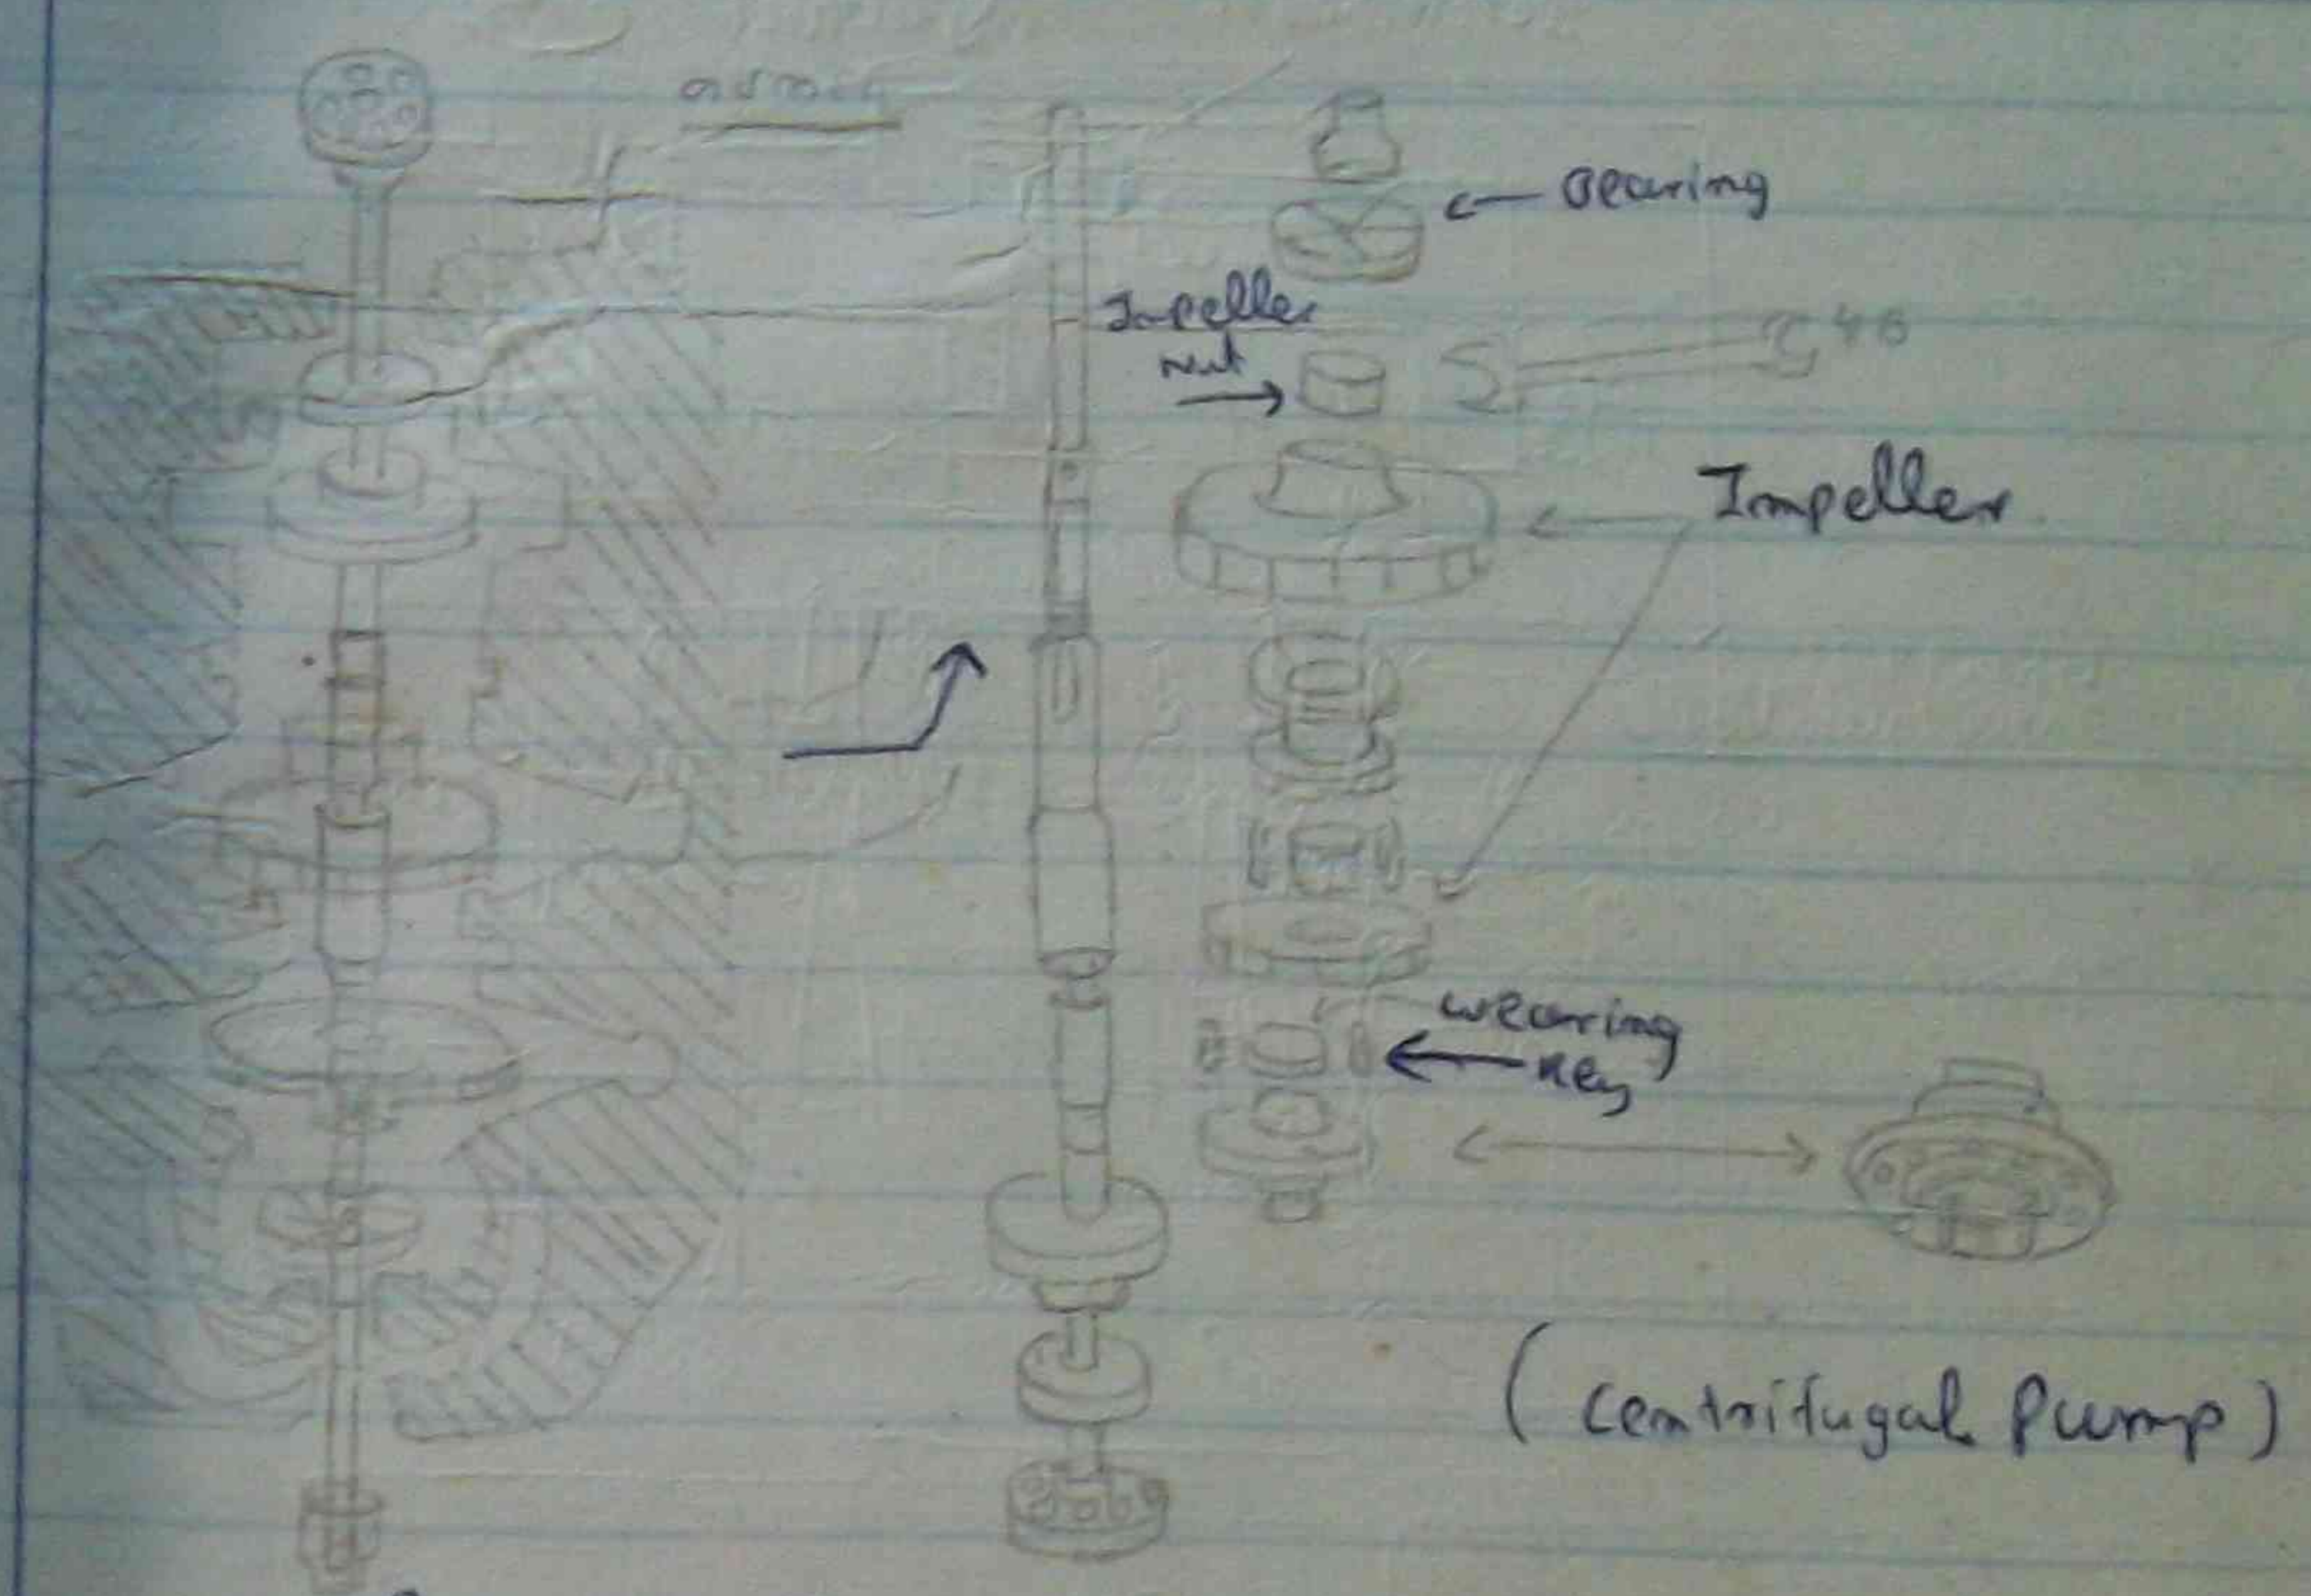 Bearing
Impeller
nut
46
Impeller
wearing
key
(Centrifugal Pump)